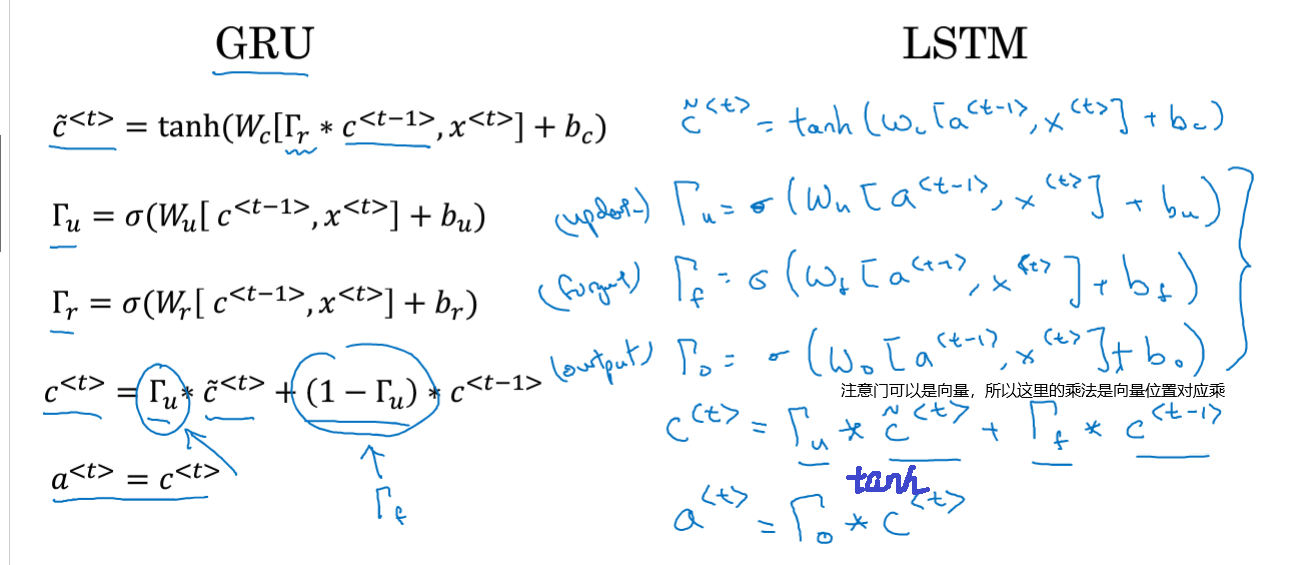 GRU
c̃<t> = tanh(Wc[Γr * c<t−1>, x<t>] + bc)
Γu = σ(Wu[ c<t−1>, x<t>] + bu)
Γr = σ(Wr[ c<t−1>, x<t>] + br)
c<t> = Γu * c̃<t> + (1 − Γu) * c<t−1>
a<t> = c<t>
Γf
LSTM
c̃<t> = tanh(Wc[a<t-1>, x<t>] + bc)
(update) Γu = σ(Wu[a<t-1>, x<t>] + bu)
(forget) Γf = σ(Wf[a<t-1>, x<t>] + bf)
(output) Γo = σ(Wo[a<t-1>, x<t>] + bo)
注意门可以是向量，所以这里的乘法是向量位置对应乘
c<t> = Γu * c̃<t> + Γf * c<t-1>
tanh
a<t> = Γo * c<t>